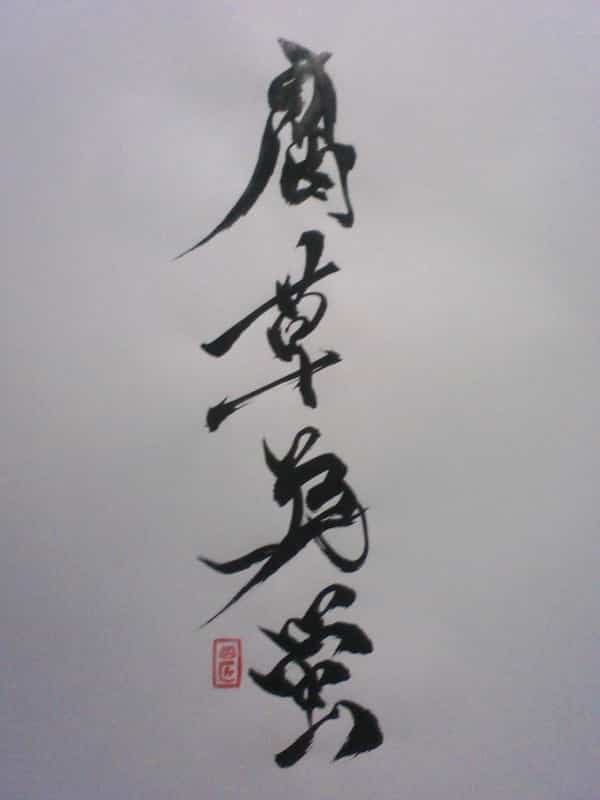 腐草為螢